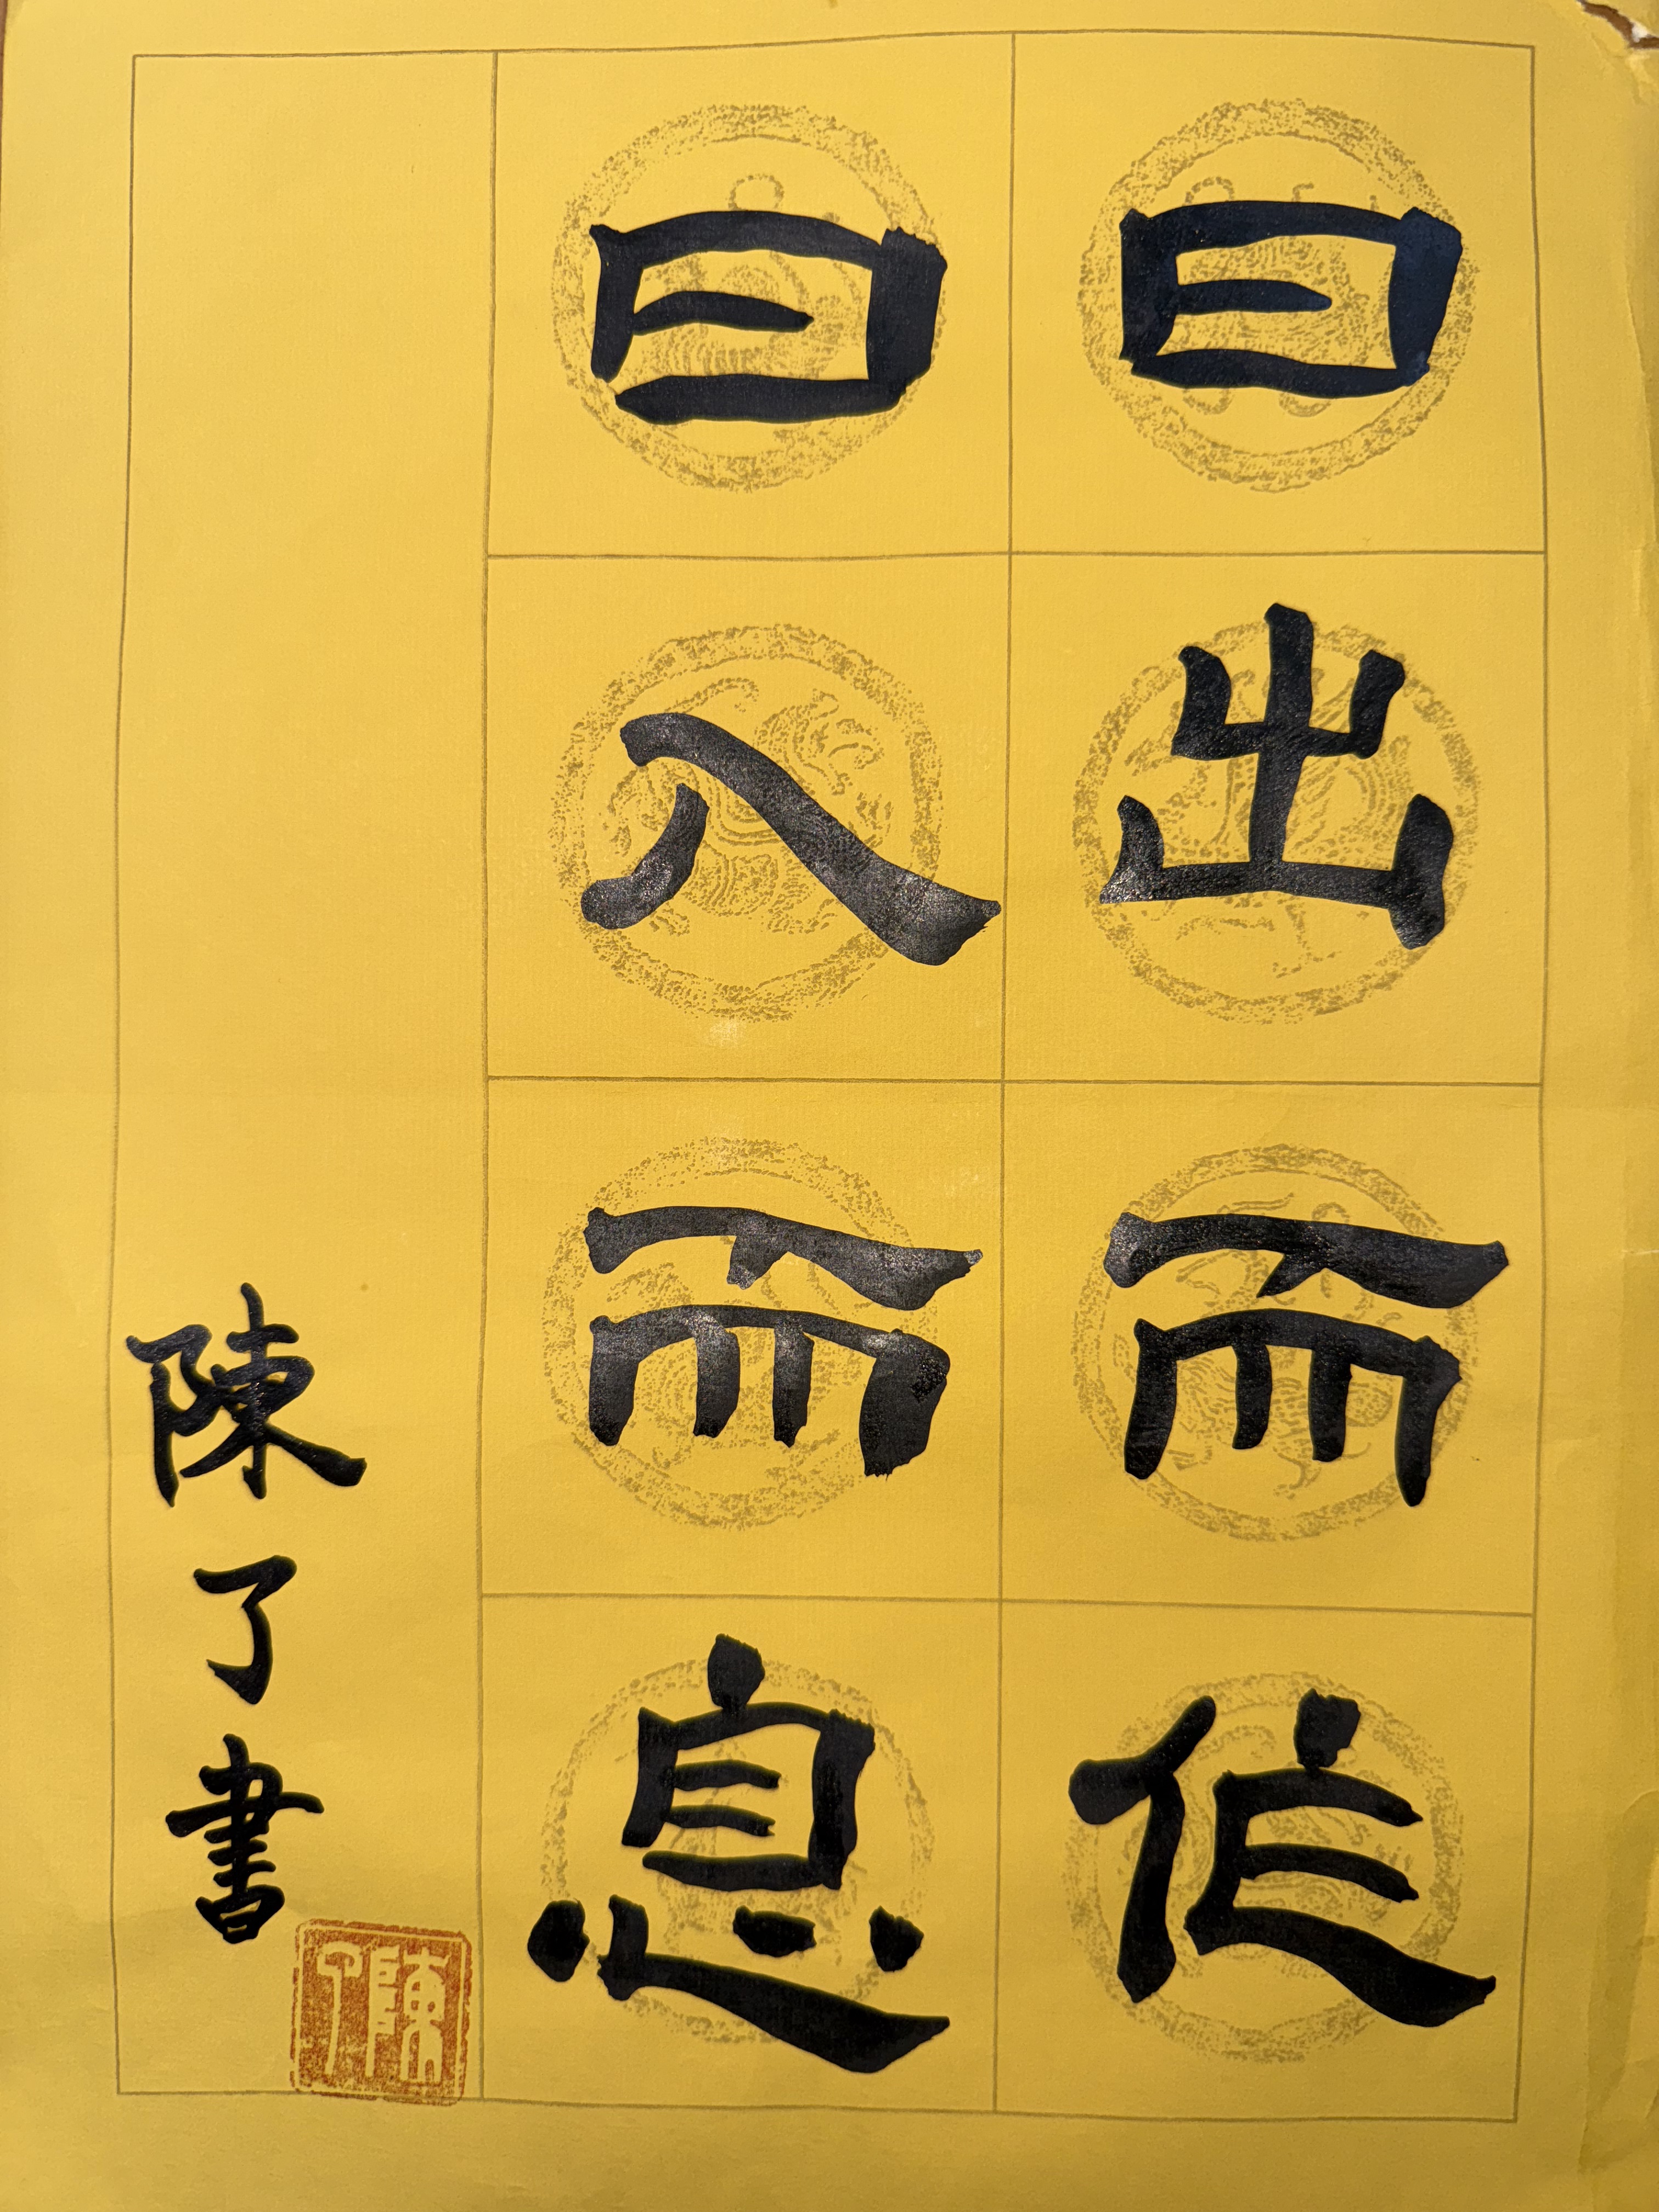 日出而作
日入而息
陳了書
陳了